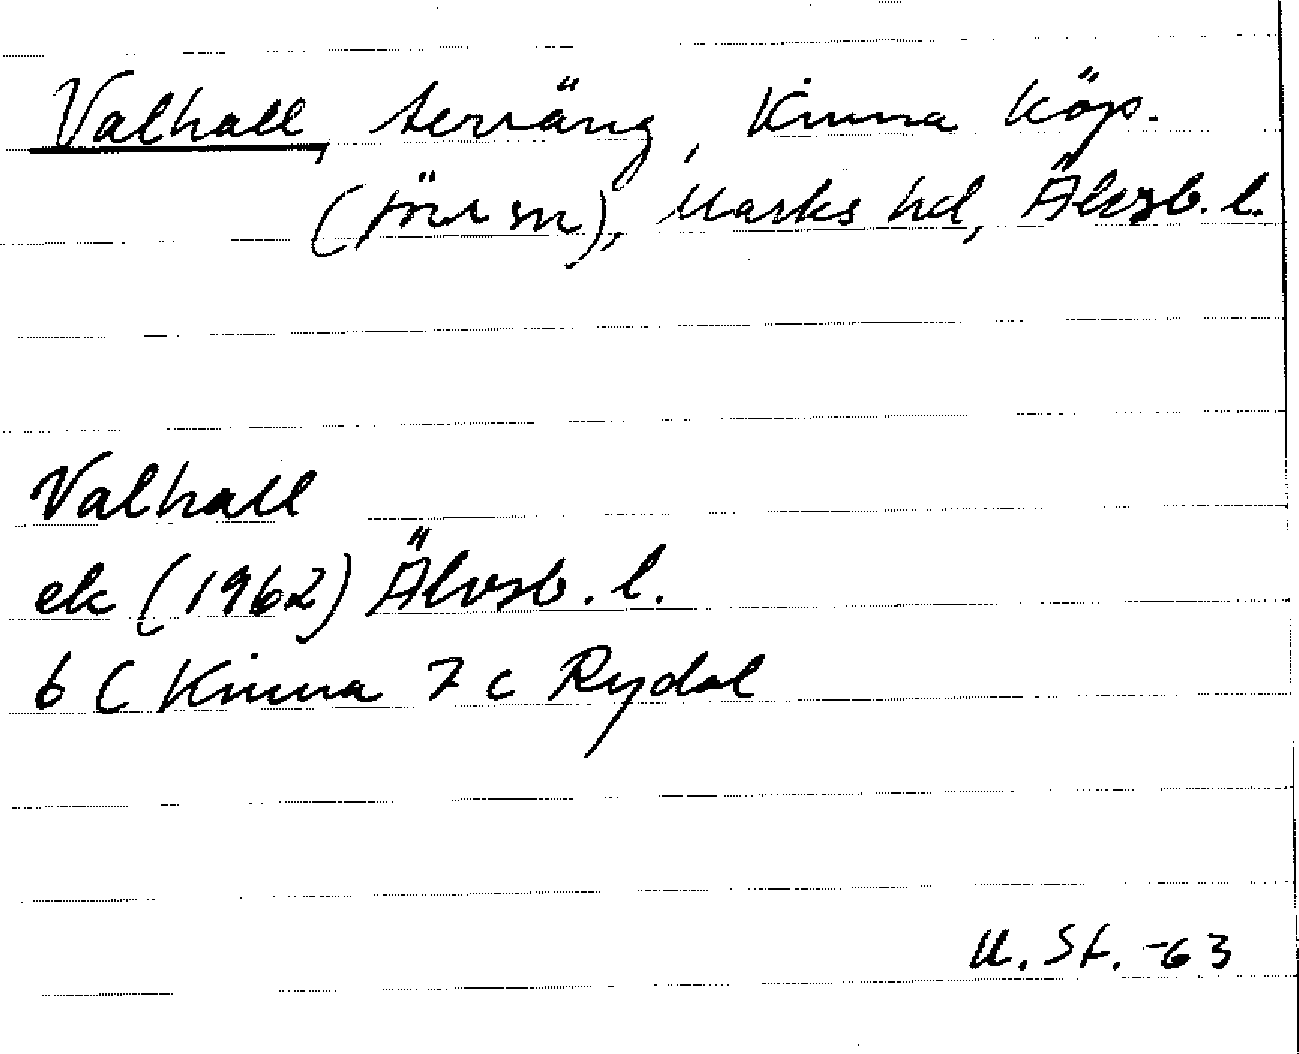 Valhall, terräng, Kinna köp.
(förr sn), Marks hd, Älvsb. l.
Valhall
ek (1962) Älvsb. l.
6 C Kinna 7 c Rydal
U. St. -63